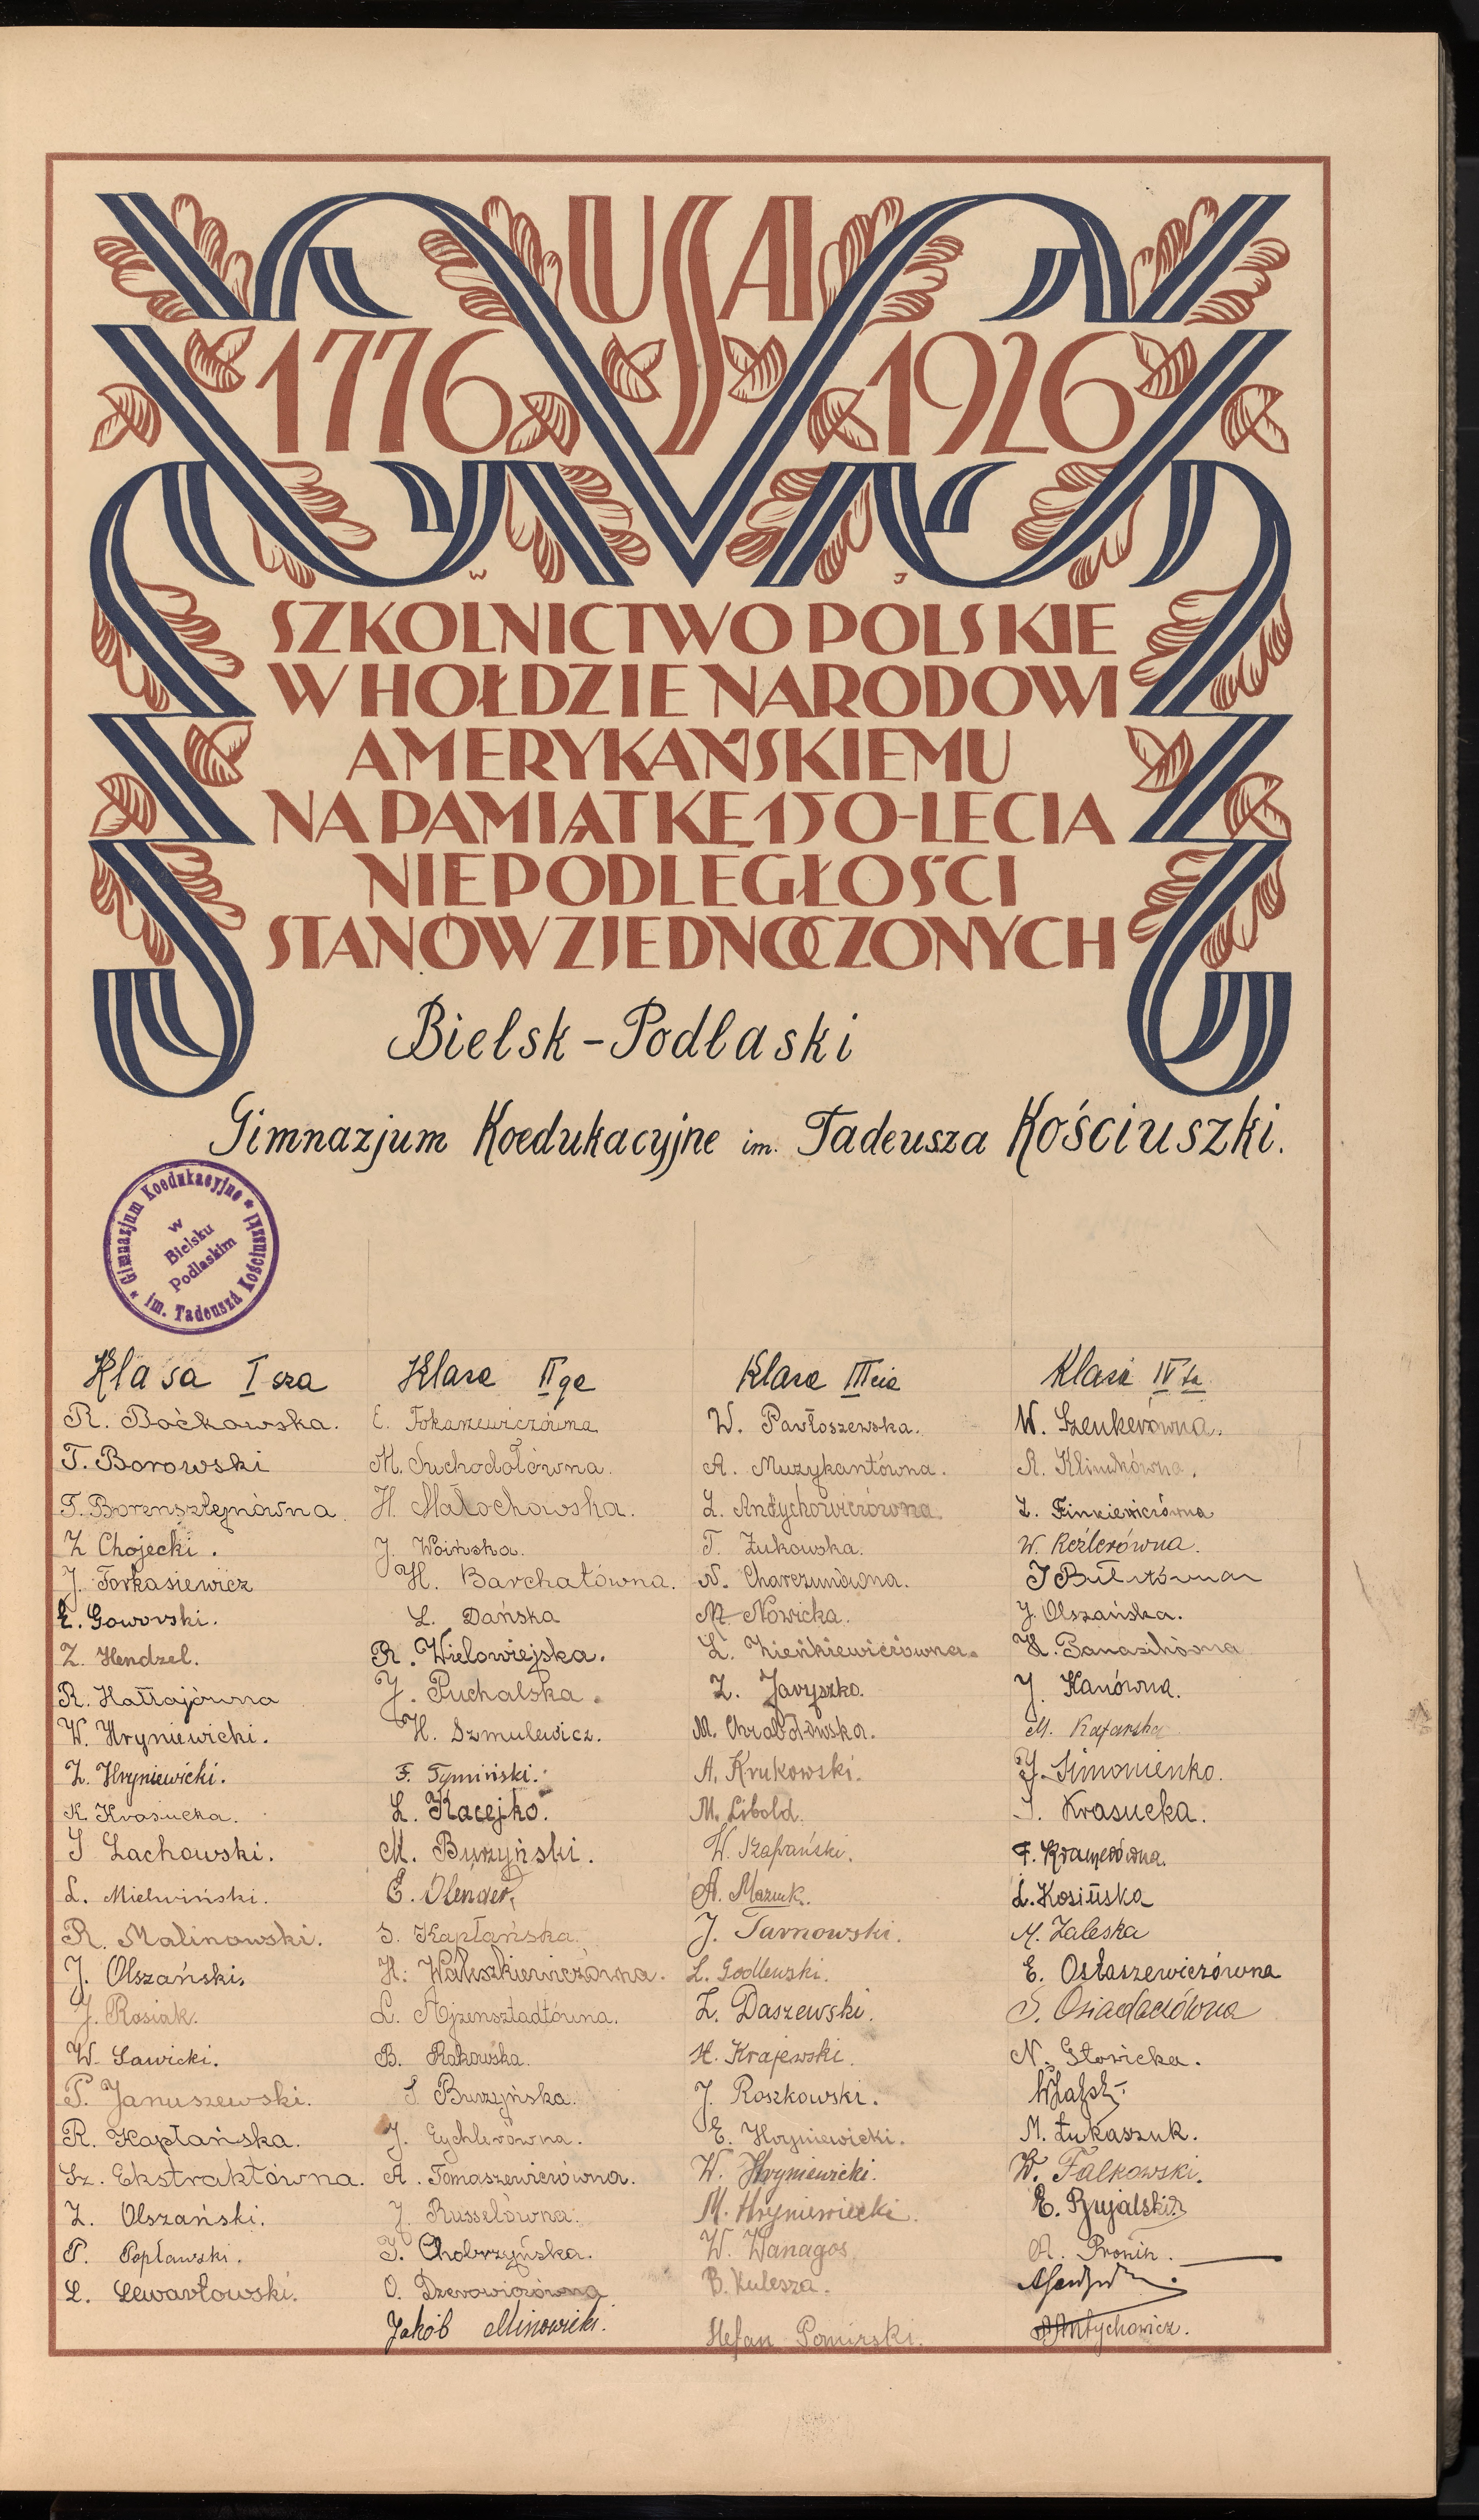 USA
1776 1926
W J
SZKOLNICTWO POLSKIE
W HOŁDZIE NARODOWI
AMERYKAŃSKIEMU
NA PAMIĄTKĘ 150-LECIA
NIEPODLEGŁOŚCI
STANÓW ZJEDNOCZONYCH
Bielsk-Podlaski
Gimnazjum Koedukacyjne im. Tadeusza Kościuszki.
Gimnazjum Koedukacyjne * im. Tadeusza Kościuszki *
w
Bielsku
Podlaskim
Klasa I sza
R. Boćkowska.
T. Borowski
T. Borensztejnówna
Z Chojecki.
J. Forkasiewicz
E. Gowovski.
Z. Hendzel.
R. Hałłajówna
W. Hryniewicki.
Z. Hryniewicki.
K. Krasucka.
J Lachowski.
L. Mielwiński.
R. Malinowski.
J. Olszański.
J. Rosiak.
W. Sawicki.
P. Januszewski.
R. Kapłańska.
Sz. Ekstraktówna.
Z. Olszański.
P. Popławski.
L. Lewartowski.
Klasa II ga
E. Tokarzewiczówna
M. Suchodołówna.
H. Małochowska.
J. Woińska.
H. Barchatówna.
L. Dańska
R. Wielowiejska.
J. Puchalska.
H. Szmulewicz.
F. Tymiński.
L. Kacejko.
M. Burzyński.
E. Olender,
S. Kapłańska.
H. Waluszkiewiczówna.
L. Ajzensztadtówna.
B. Rakowska.
J. Burzyńska.
J. Eychlerówna.
A. Tomaszewiczówna.
J. Russelówna.
J. Chobrzyńska.
O. Dzerowiczówna
Jakób Minowicki.
Klasa III cia
W. Pawłoszewska.
A. Muzykantówna.
L. Andychowiczówna.
T. Żukowska.
N. Charczunówna.
M. Nowicka.
L. Zieńkiewiczówna.
Z. Javyszko.
M. Chrabołowska.
A. Krukowski.
M. Libold.
W. Szafrański.
A. Mazuk.
J. Tarnowski.
L. Godlewski.
Z. Daszewski.
H. Krajewski.
J. Roszkowski.
E. Hryniewicki.
W. Hryniewicki.
M. Hryniewiecki.
W. Wanagos
B. Kulesza.
Stefan Pomirski.
Klasa IV ta
W. Szenkerówna.
A. Klimkówna.
L. Finkiewiczówna
W. Keźlerówna.
J. Olszańska.
H. Banasikówna
J. Kanówna.
M. Kafarska
J. Simonienko.
J. Krasucka.
F. Kramerówna.
L. Kosińska
M. Zaleska
E. Ostaszewiczówna
S. Osiadaczówna
N. Słowicka.
M. Łukaszuk.
W. Falkowski.
E. Rujalski
A. Pronin.
A Antychowicz.